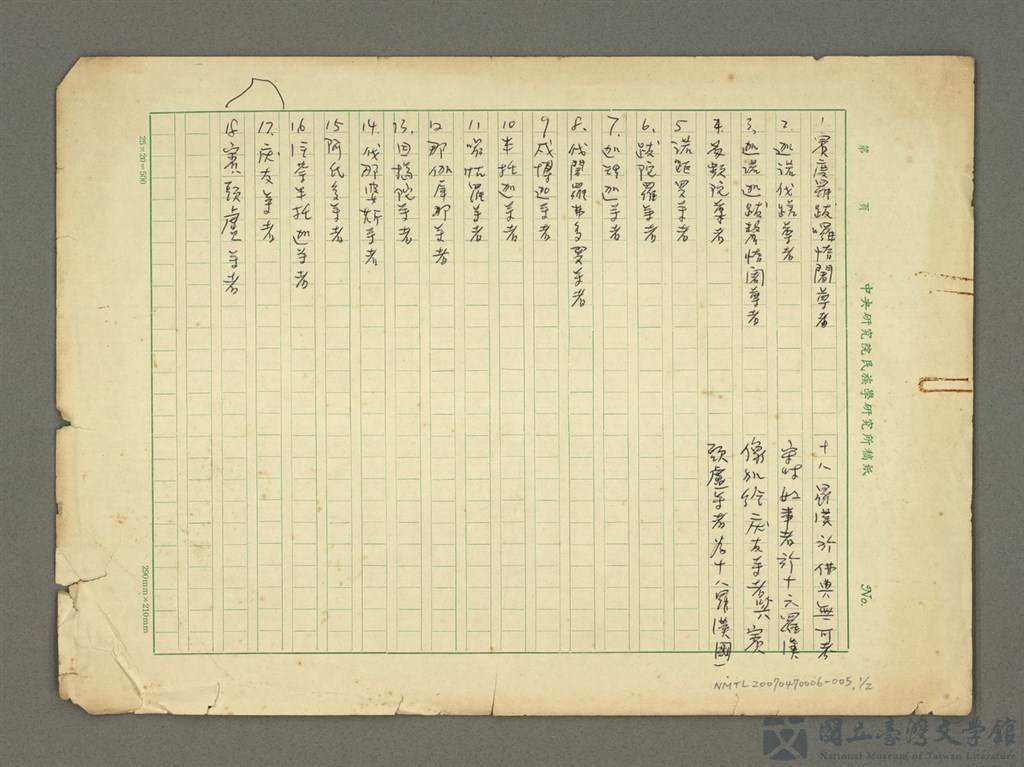 第　頁
中央研究院民族學研究所稿紙
No.
1. 賓度羅跋囉惰闍尊者
2. 迦諾伐蹉尊者
3. 迦諾迦跋釐惰闍尊者
4. 蘇頻陀尊者
5. 諾距羅尊者
6. 跋陀羅尊者
7. 迦理迦尊者
8. 伐闍羅弗多羅尊者
9. 戍博迦尊者
10 半托迦尊者
11. 囉怙羅尊者
12 那伽犀那尊者
13. 因揭陀尊者
14. 伐那婆斯尊者
15 阿氏多尊者
16 注荼半托迦尊者
17. 庆友尊者
18 賓頭盧尊者
十八羅漢於佛典無可考
宋時好事者於十六羅漢
像外繪庆友尊者與賓
頭盧尊者為十八羅漢圖
25×20=500
290mm×210mm
NMTL20070470006-005, 1/2
國立臺灣文學館
National Museum of Taiwan Literature